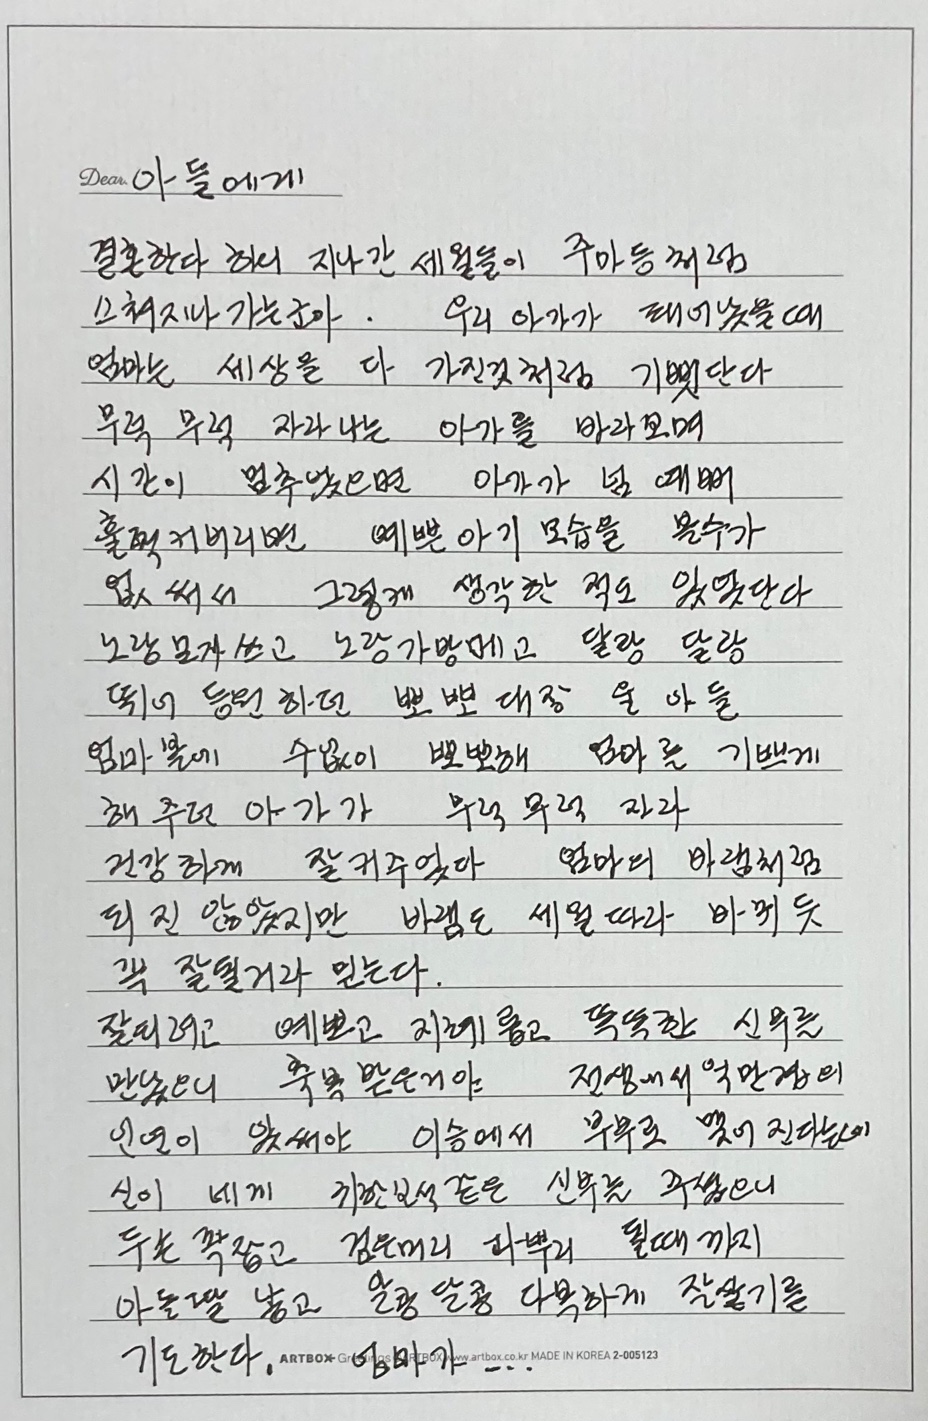 Dear. 아들에게
결혼한다 하니 지나간 세월들이 주마등처럼
스쳐지나 가는군아. 우리 아가가 태어낫을때
엄마는 세상을 다 가진것처럼 기뻣단다
무럭 무럭 자라나는 아가를 바라보며
시간이 멈추엇으면 아가가 넘 예뻐
훌쩍커버리면 예쁜아기 모습을 볼수가
없써서 그렇게 생각한 적도 잇엇단다
노랑모자쓰고 노랑가방메고 달랑 달랑
뛰어 등원하던 뽀뽀대장 울 아들
엄마볼에 수없이 뽀뽀해 엄마를 기쁘게
해주던 아가가 무럭무럭 자라
건강하게 잘커주엇다 엄마의 바램처럼
되진 않앗지만 바램도 세월따라 바뀌듯
꼭 잘될거라 믿는다.
잘되려고 예쁘고 지혜롭고 똑똑한 신부를
만낫으니 축복받은거야 전생에서 억만겁의
인연이 잇써야 이승에서 부부로 맺어진다는데
신이 네게 귀한보석같은 신부를 주셨으니
두손꽉잡고 검은머리 파뿌리 될때까지
아들딸 낳고 알콩달콩 다복하게 잘살기를
기도한다. 엄마가 ....
ARTBOX Greetings ARTBOX www.artbox.co.kr MADE IN KOREA 2-005123